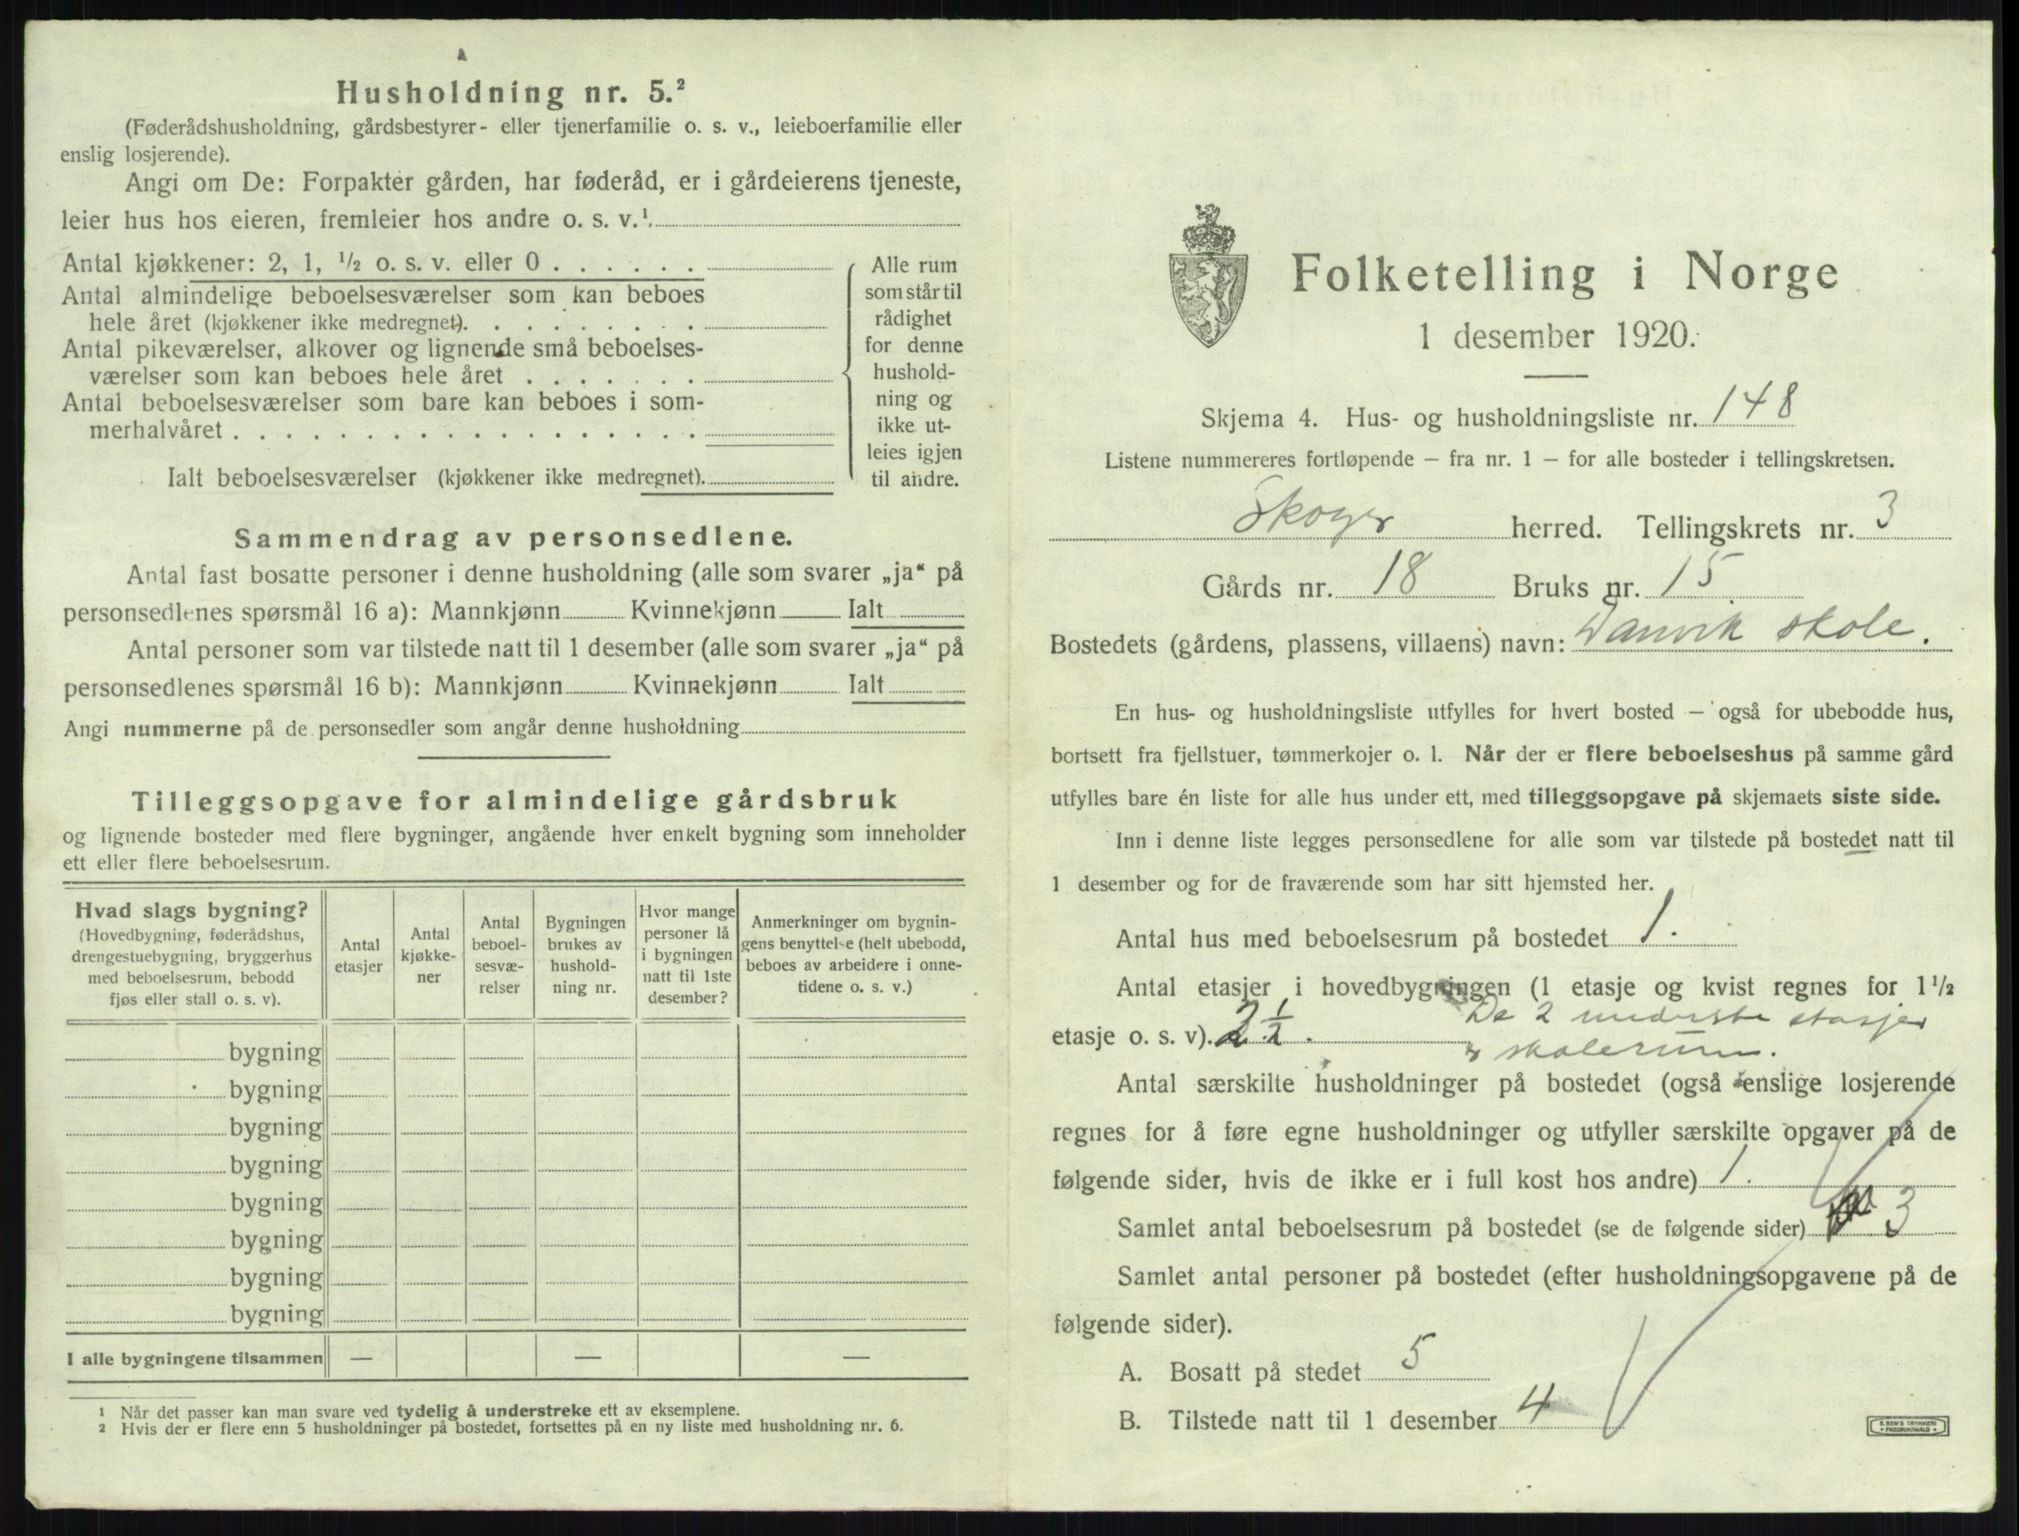 Husholdning nr. 5.²
(Føderådshusholdning, gårdsbestyrer- eller tjenerfamilie o. s. v., leieboerfamilie eller
enslig losjerende).
Angi om De: Forpakter gården, har føderåd, er i gårdeierens tjeneste,
leier hus hos eieren, fremleier hos andre o. s. v.¹
Antal kjøkkener: 2, 1, ½ o. s. v. eller 0 . . . . . .
Antal almindelige beboelsesværelser som kan beboes
hele året (kjøkkener ikke medregnet). . . . . . . . .
Antal pikeværelser, alkover og lignende små beboelses-
værelser som kan beboes hele året . . . . . . .
Antal beboelsesværelser som bare kan beboes i som-
merhalvåret . . . . . . . . . . . . . . . . . .
Ialt beboelsesværelser (kjøkkener ikke medregnet).
Alle rum
som står til
rådighet
for denne
hushold-
ning og
ikke ut-
leies igjen
til andre.
Sammendrag av personsedlene.
Antal fast bosatte personer i denne husholdning (alle som svarer „ja“ på
personsedlenes spørsmål 16 a): Mannkjønn Kvinnekjønn Ialt
Antal personer som var tilstede natt til 1 desember (alle som svarer „ja“ på
personsedlenes spørsmål 16 b): Mannkjønn Kvinnekjønn Ialt
Angi nummerne på de personsedler som angår denne husholdning
Tilleggsopgave for almindelige gårdsbruk
og lignende bosteder med flere bygninger, angående hver enkelt bygning som inneholder
ett eller flere beboelsesrum.
Hvad slags bygning?
(Hovedbygning, føderådshus,
drengestuebygning, bryggerhus
med beboelsesrum, bebodd
fjøs eller stall o. s. v).
Antal
etasjer
Antal
kjøkke-
ner
Antal
beboel-
sesvæ-
relser
Bygningen
brukes av
hushold-
ning nr.
Hvor mange
personer lå
i bygningen
natt til 1ste
desember?
Anmerkninger om bygnin-
gens benyttelse (helt ubebodd,
beboes av arbeidere i onne-
tidene o. s. v.)
bygning
bygning
bygning
bygning
bygning
bygning
bygning
bygning
I alle bygningene tilsammen — — —
¹ Når det passer kan man svare ved tydelig å understreke ett av eksemplene.
² Hvis der er flere enn 5 husholdninger på bostedet, fortsettes på en ny liste med husholdning nr. 6.
Folketelling i Norge
1 desember 1920.
Skjema 4. Hus- og husholdningsliste nr. 148
Listene nummereres fortløpende – fra nr. 1 – for alle bosteder i tellingskretsen.
Skoger herred. Tellingskrets nr. 3
Gårds nr. 18 Bruks nr. 15
Bostedets (gårdens, plassens, villaens) navn: Danvik skole.
En hus- og husholdningsliste utfylles for hvert bosted – også for ubebodde hus,
bortsett fra fjellstuer, tømmerkojer o. l. Når der er flere beboelseshus på samme gård
utfylles bare én liste for alle hus under ett, med tilleggsopgave på skjemaets siste side.
Inn i denne liste legges personsedlene for alle som var tilstede på bostedet natt til
1 desember og for de fraværende som har sitt hjemsted her.
Antal hus med beboelsesrum på bostedet 1.
Antal etasjer i hovedbygningen (1 etasje og kvist regnes for 1½
De 2 underste etasjer
etasje o. s. v). 2 ½.
skolerum.
Antal særskilte husholdninger på bostedet (også enslige losjerende
regnes for å føre egne husholdninger og utfyller særskilte opgaver på de
følgende sider, hvis de ikke er i full kost hos andre) 1.
Samlet antal beboelsesrum på bostedet (se de følgende sider) 3
Samlet antal personer på bostedet (efter husholdningsopgavene på de
følgende sider).
A. Bosatt på stedet 5
B. Tilstede natt til 1 desember 4